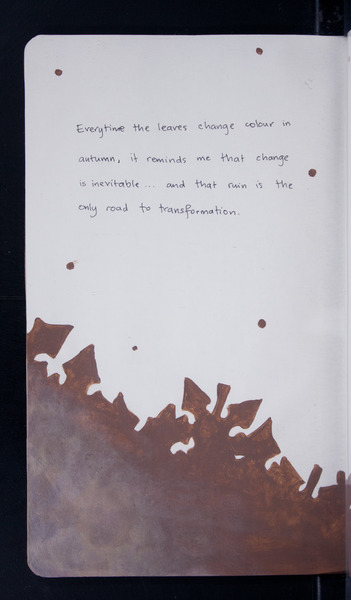 Everytime the leaves change colour in
autumn, it reminds me that change
is inevitable... and that ruin is the
only road to transformation.